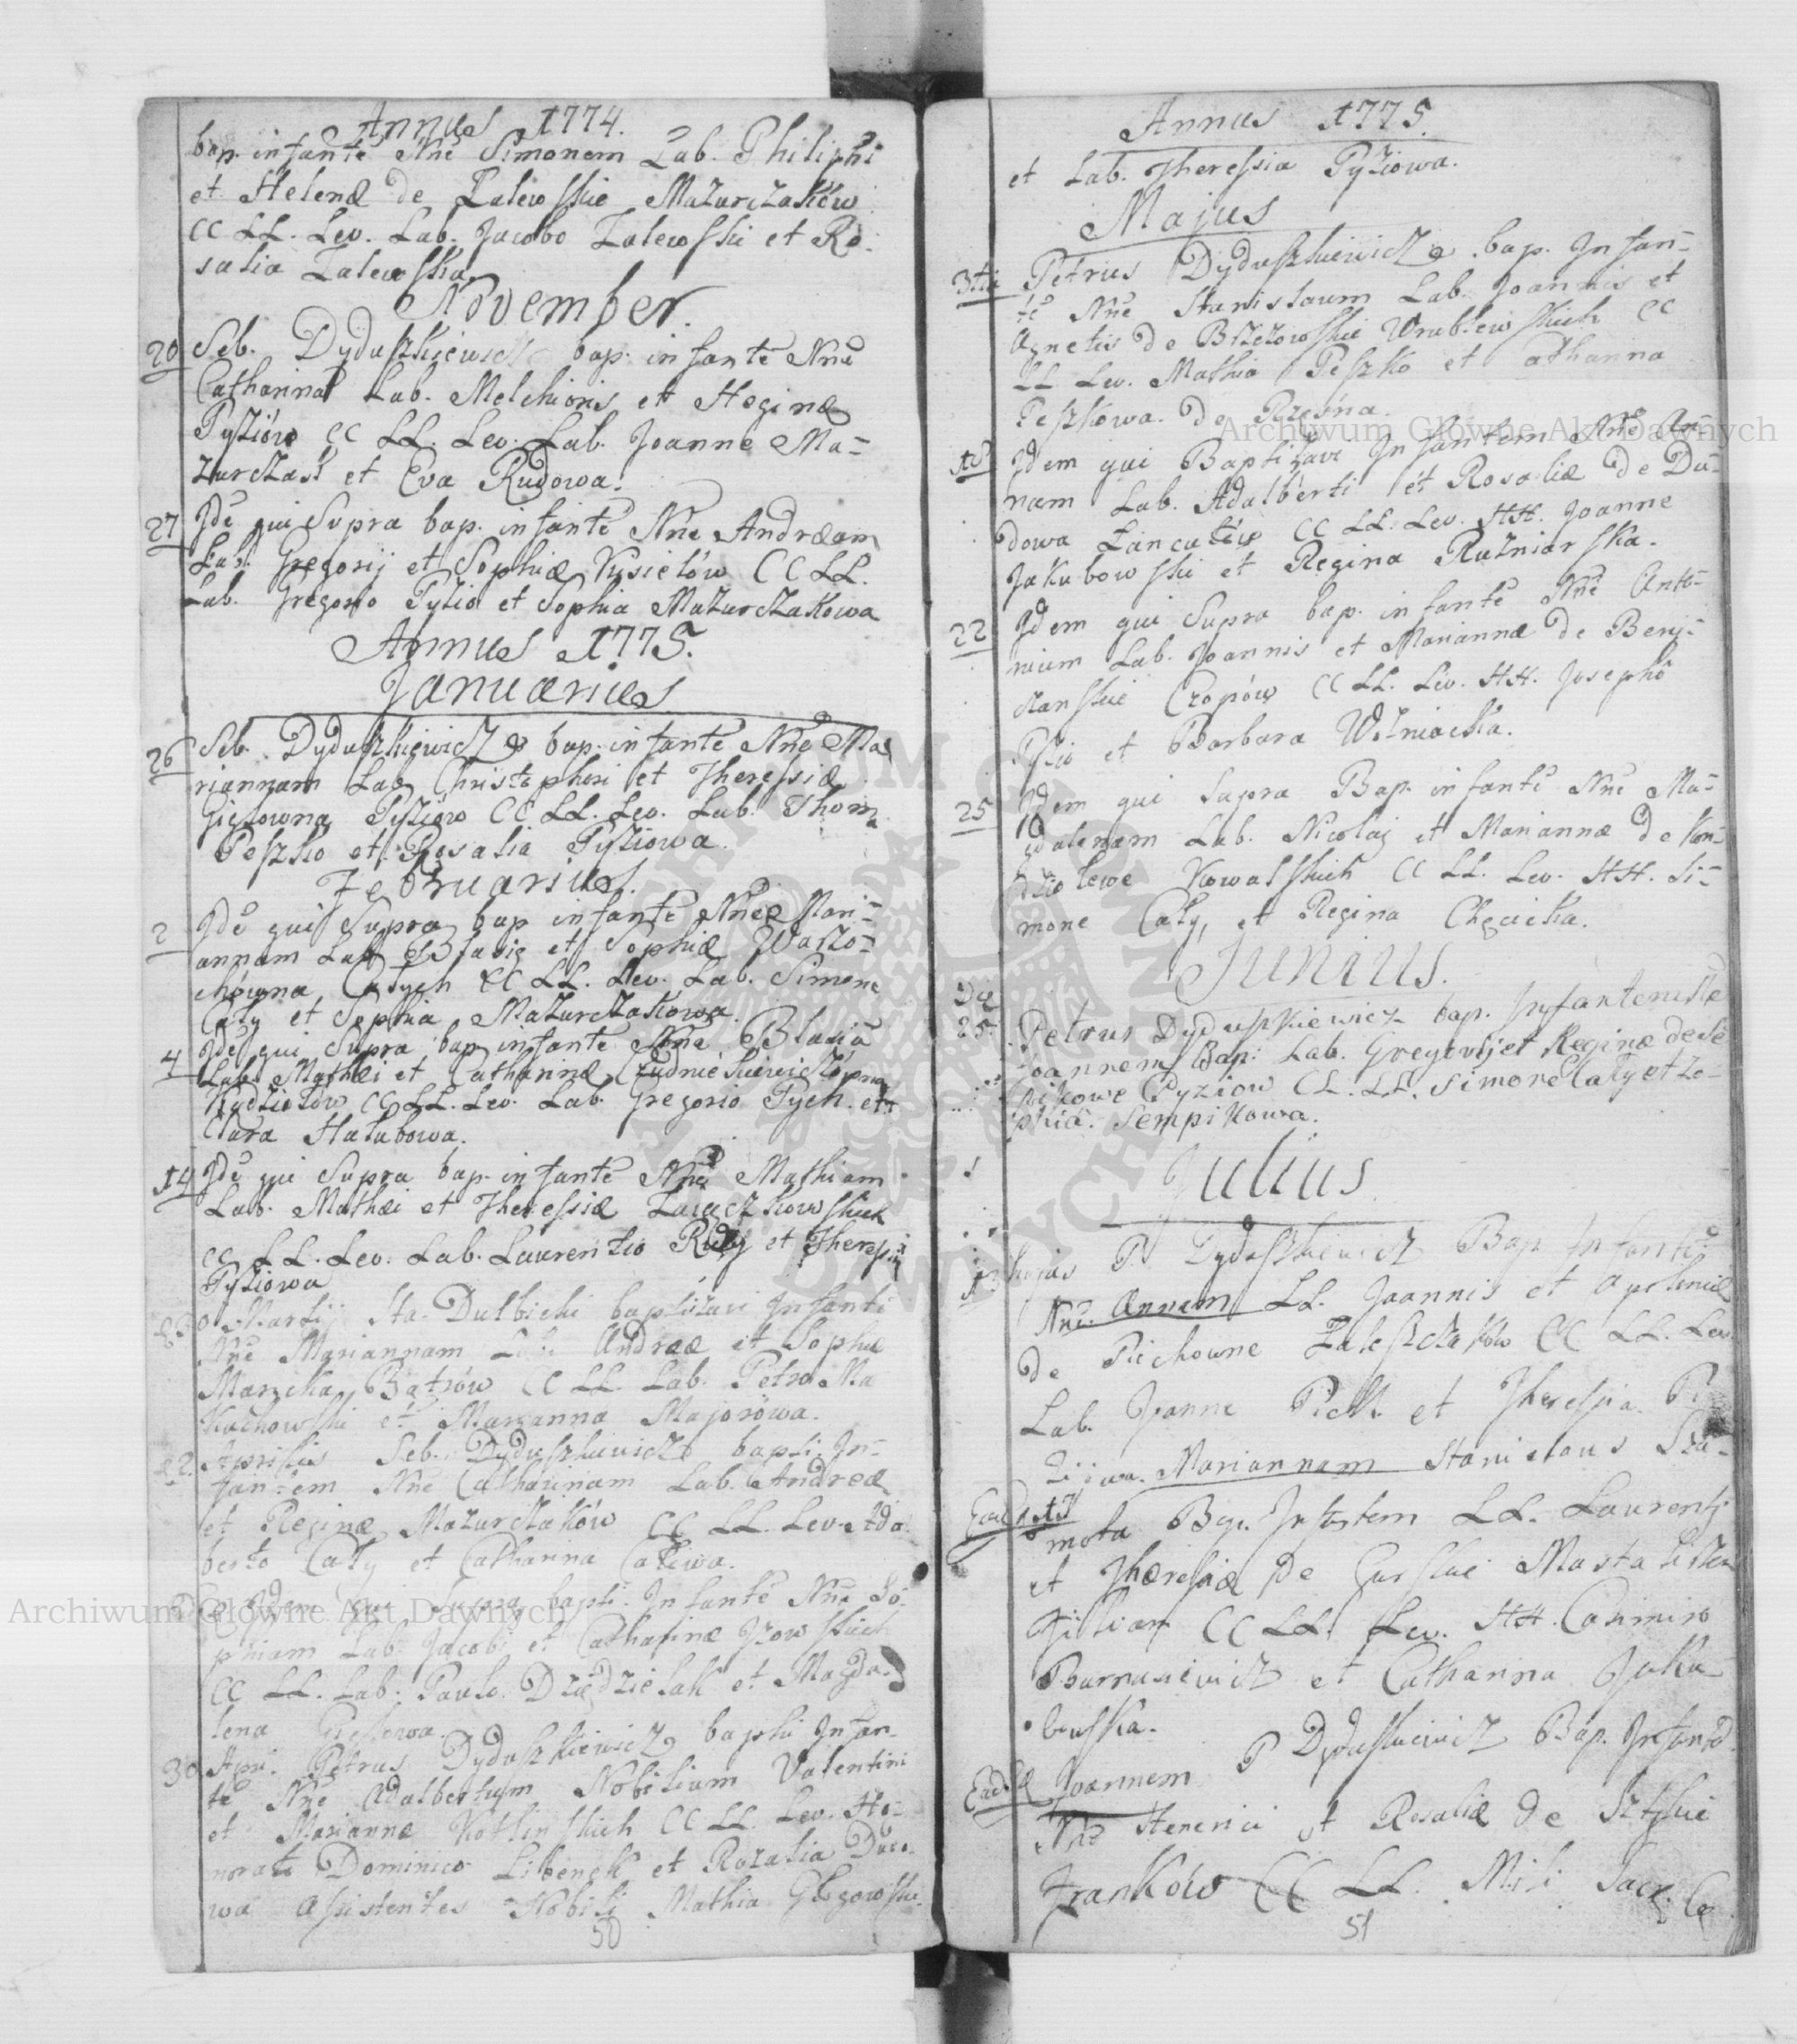 Annus 1774.
bap. infantē Nnē Simonem Lab. Philiphi
et Helenæ de Zalewskie Mazurczaków
CC LL. Lev. Lab. Jacobo Zalewski et Ro-
salia Zalewska
November.
20 Seb. Dyduszkiewicz bap. infantē Nnē
Catharina Lab. Melchioris et Reginæ
Pyziów CC LL. Lev. Lab. Joanne Ma-
zurczak et Eva Rudowa.
27 Jdē qui Supra bap. infantē Nnē Andræam
Lab. Gregorij et Sophiæ Kysielów CC LL.
Lab. Gregorio Pyzio et Sophia Mazurczakowa
Annus 1775.
Januarius
26 Seb. Dyduszkiewicz bap. infantē Nnē Ma
riannam Lab. Christophori et Theressiæ
Pyziów CC LL. Lev. Lab. Thoma
Peszko et Rosalia Pyziowa.
Februarius.
2 Jdē qui Supra bap infantē Nnē Mari-
annam Lab. Blasij et Sophiæ
Całych CC LL. Lev. Lab. Simone
Cały et Sophia Mazurczakowa.
4 Jdē qui Supra bap infantē Nnē Blasiū
Lab. Mathæi et Catharinæ
CC LL. Lev. Lab. Gregorio Pych. et
Clara Hałubowa.
14 Jdē qui Supra bap. infantē Nnē Mathiam
Lab. Mathæi et Theressiæ
CC LL. Lev. Lab. Laurentio Rudy et Theressia
Pyziowa
Martij Sta. Dulbichi baptizavi Jnfantē
Nnē Mariannam Lab. Andreæ et Sophiæ
Bątrów CC LL. Lab. Petro Ma
kuchowski et Marianna Majorowa.
22. Aprilis Seb. Dyduszkiewicz bapti. Jn-
fantem Nnē Catharinam Lab. Andreæ
et Reginæ Mazurczaków CC LL. Lev. Ada
berto Cały et Catharina Całewa.
Jdem qui Supra bapti. Jnfantē Nnē So-
phiam Lab. Jacobi et Catharinæ
CC LL. Lab. Paulo Dządzielak et Magda-
lena
30 Apri. Petrus Dyduszkiewicz bapti Jnfan-
tē Nnē Adalbertum Nobilium Valentini
et Mariannæ Kotlinskich CC LL. Lev. Ho-
norati Dominico et Rozalia
wa assistentes Nobili Mathia
50
Annus 1775.
et Lab. Theressia Pyziowa.
Majus
3tia Petrus Dyduszkiewicz bap. Jnfan-
tē Nnē Stanislaum Lab. Joannis et
Agnetis de Brzezowskie Wrublewskich CC
LL Lev. Mathia Peszko et Catharina
Peszkowa. de Rzesna.
18 Jdem qui Baptizavi Jnfantem Nnē An-
nam Lab. Adalberti et Rosaliæ de Du-
dowa Łancutów CC LL. Lev. HH. Joanne
Jakubowski et Regina Ruzniarska.
22 Jdem qui Supra bap. infantē Nnē Anto-
nium Lab. Joannis et Mariannæ de Beny-
czanskie Czopów CC LL. Lev. HH. Josepho
Pyzio et Barbara Wozniacka.
25 Jdem qui Supra Bap. infantē Nnē Ma-
gdalenam Lab. Nicolaj et Mariannæ de Kon-
dziolewe Kowalskich CC LL. Lev. HH. Si-
mone Cały, et Regina Chęcicka.
Junius.
Die
25. Petrus Dyduszkiewicz bap. Jnfantem Nē
Joannem Bap: Lab. Gregorij et Reginæ de Sē
pikowe Pyziow CC. LL. Simone Cały et Zo-
phia. Sempikowa.
Julius
P Dyduszkiewicz Bap Jnfantē
Nnē. Annam LL. Joannis et
de Pichowne CC LL. Lev.
Lab. Joanne Pich. et Theressia
Mariannam Stanislaus Sza-
Eadē
mota Bap. Jnfantem LL. Laurentij
et Theresiæ de Gurskie
CC LL. Lev. HH. Casimiro
et Catharina Jaku-
buska.
Eadē Joannem P Dyduszkiewicz Bap. Jnfantē
Nnē Henrici et Rosaliæ de
Franków CC LL.
51
Archiwum Główne Akt Dawnych
Archiwum Główne Akt Dawnych